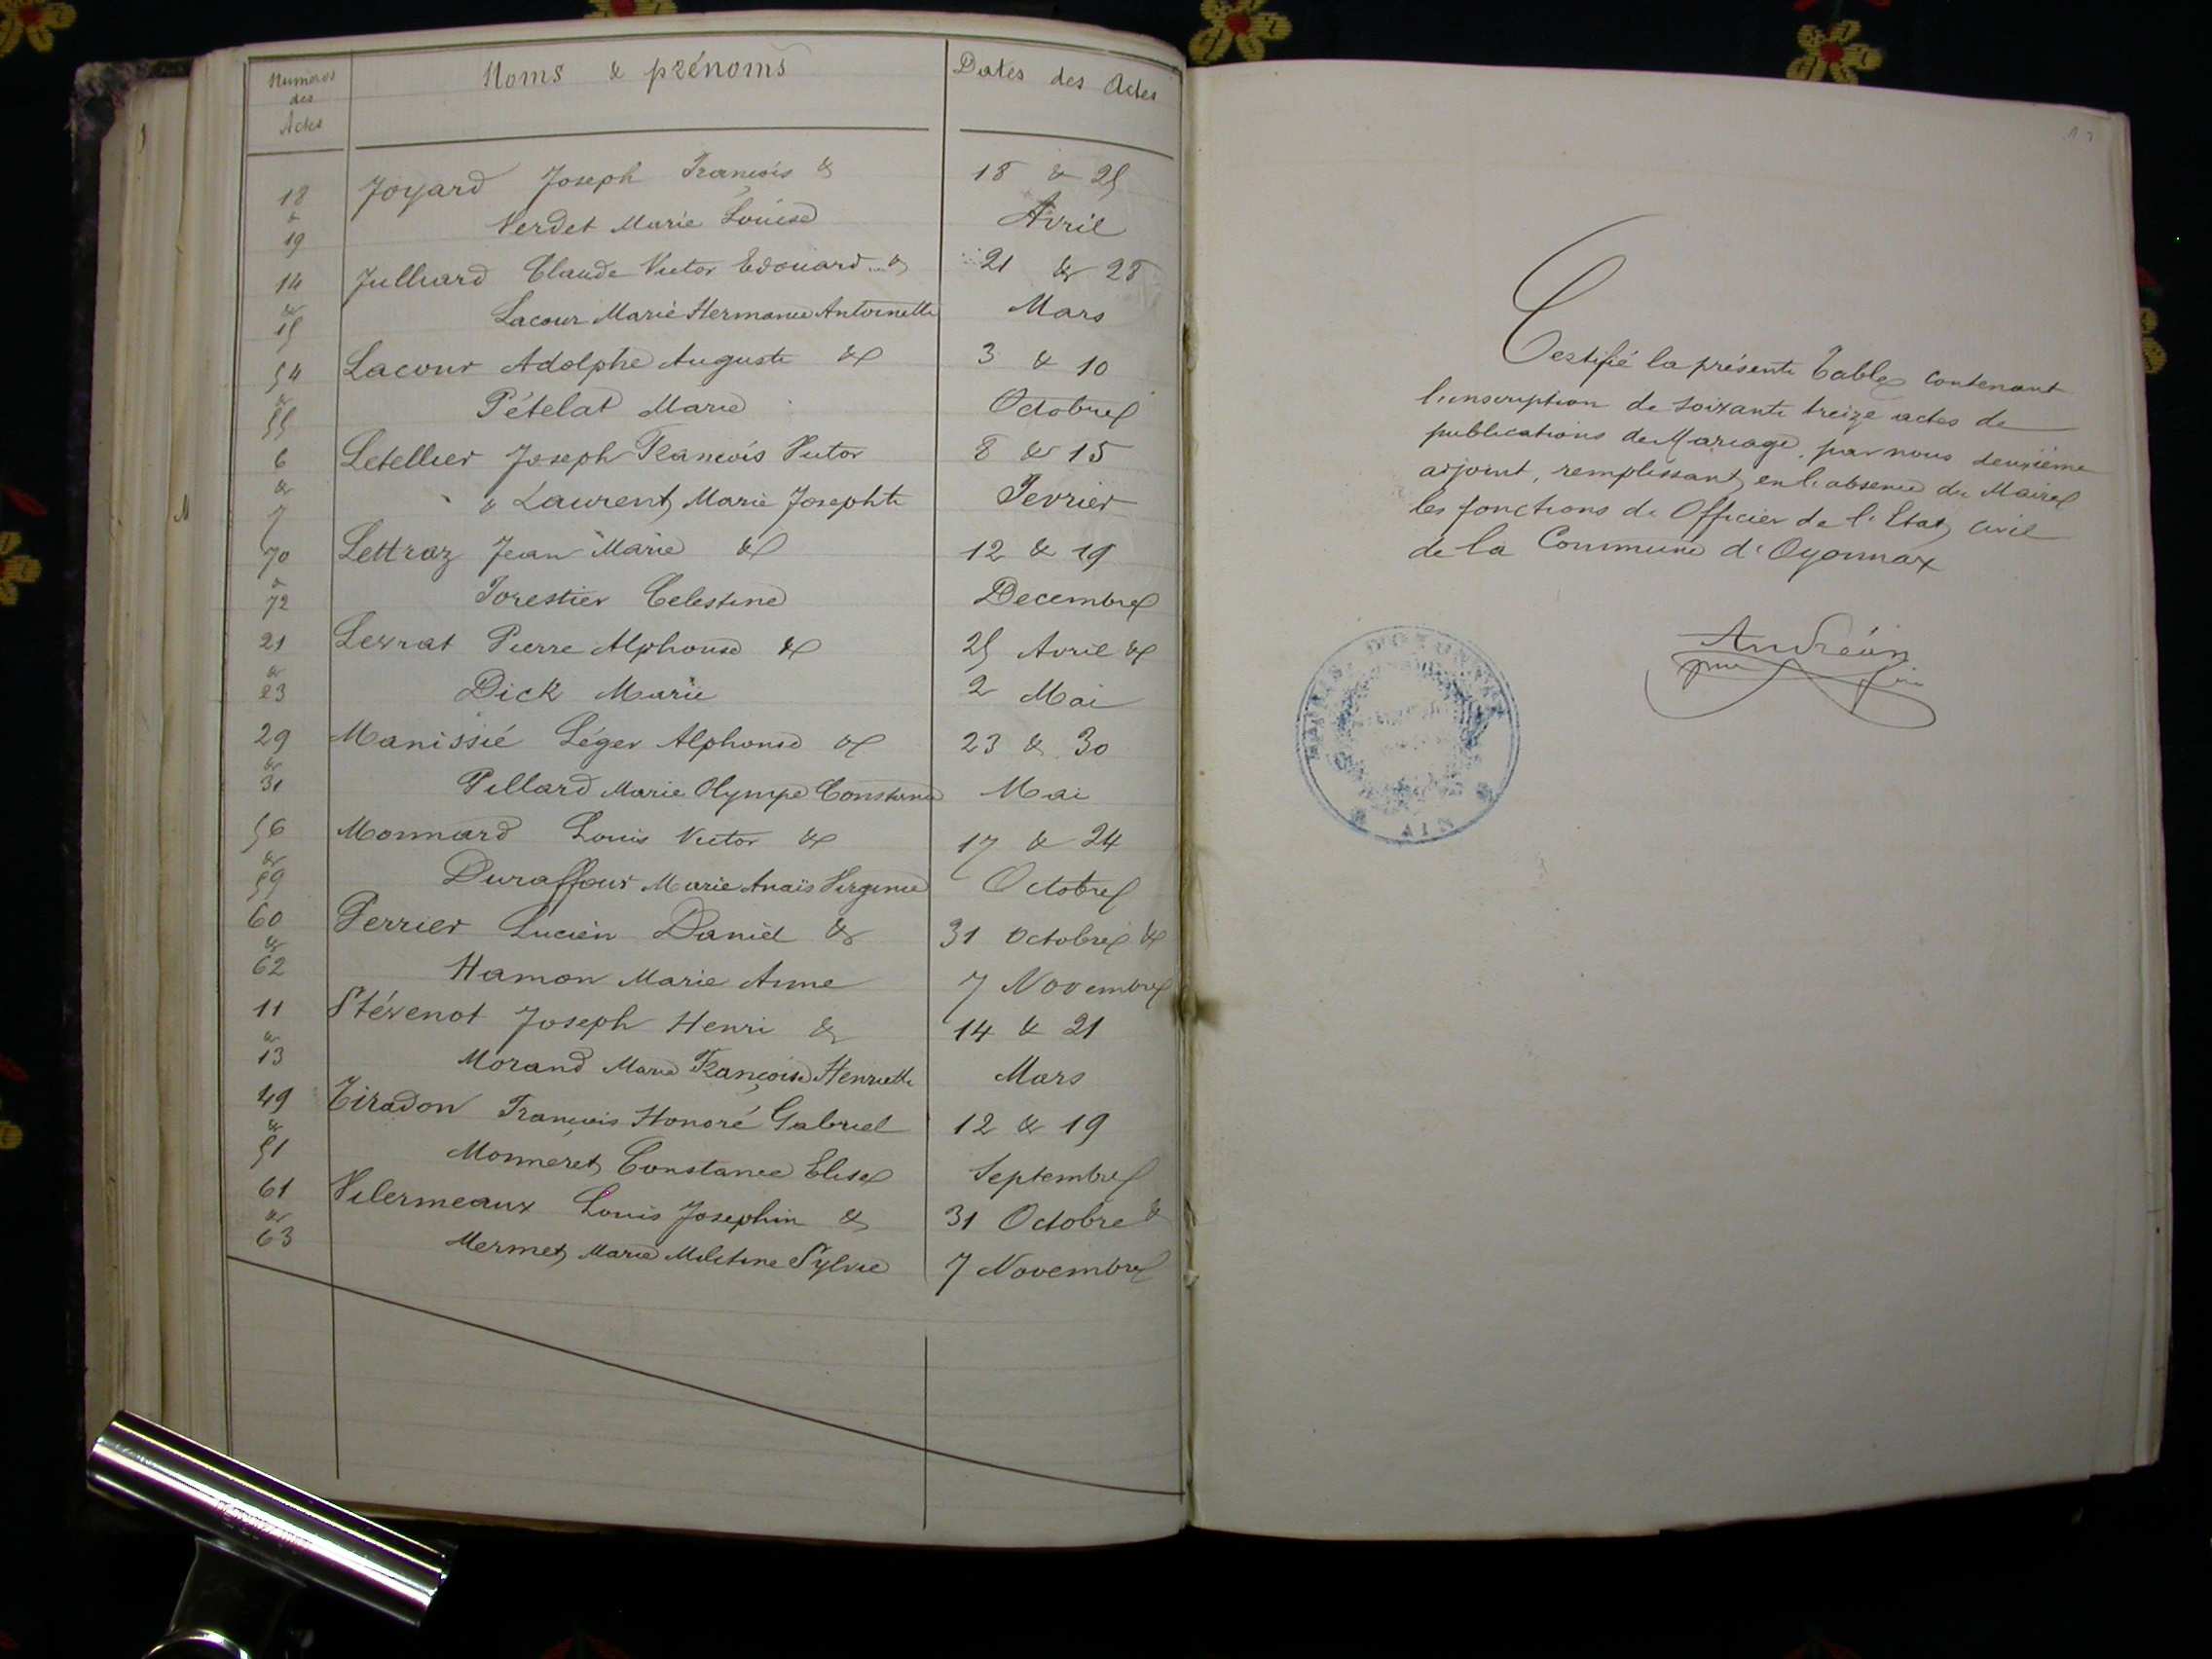 Numéros des Actes
Noms & prénoms
Dates des Actes
18 Joyard Joseph François & 18 & 25
& 19 Verdet Marie Louise Avril
14 Julliard Claude Victor Edouard & 21 & 28
& 15 Lacour Marie Hermance Antoinette Mars
54 Lacour Adolphe Auguste & 3 & 10
& 55 Pételat Marie Octobre
6 Letellier Joseph François Victor 8 & 15
& 7 & Laurent Marie Josephte Fevrier
70 Lettraz Jean Marie & 12 & 19
& 72 Forestier Celestine Decembre
21 Levrat Pierre Alphonse & 25 Avril &
& 23 Dick Marie 2 Mai
29 Manissié Léger Alphonse & 23 & 30
& 31 Pillard Marie Olympe Constance Mai
56 Monnard Louis Victor & 17 & 24
& 59 Duraffour Marie Anaïs Virginie Octobre
60 Perrier Lucien Daniel & 31 Octobre &
& 62 Hamon Marie Anne 7 Novembre
11 Stévenot Joseph Henri & 14 & 21
& 13 Morand Marie Françoise Henriette Mars
49 Tiradon François Honoré Gabriel 12 & 19
& 51 Monneret Constance Elise Septembre
61 Vilermeaux Louis Josephin & 31 Octobre &
& 63 Mermet Marie Melitine Sylvie 7 Novembre
Certifié la présente Table contenant
l'inscription de soixante treize actes de
publications de Mariage, par nous deuxième
adjoint, remplissant en l'absence du Maire
les fonctions de Officier de l'Etat civil
de la Commune d'Oyonnax
MAIRIE D'OYONNAX
AIN